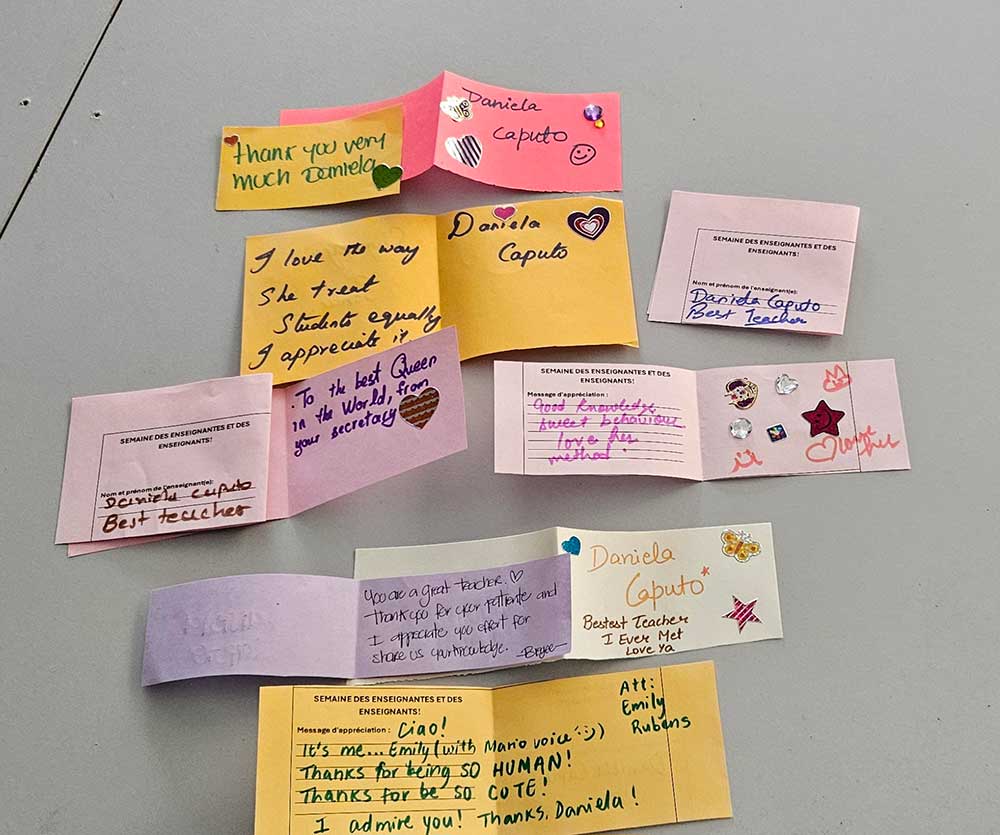 Daniela
Caputo
thank you very
much Daniela
Daniela
Caputo
I love the way
She treat
Students equally
I appreciate it.
SEMAINE DES ENSEIGNANTES ET DES
ENSEIGNANTS!
Nom et prénom de l'enseignant(e):
Daniela Caputo
Best Teacher
To the best Queen
in the World, from
your secretary
SEMAINE DES ENSEIGNANTES ET DES
ENSEIGNANTS!
Nom et prénom de l'enseignant(e):
Daniela Caputo
Best teacher
SEMAINE DES ENSEIGNANTES ET DES
ENSEIGNANTS!
Message d'appréciation :
Good knowledge
sweet behaviour
love her
method!
love
her
Daniela
Caputo
Bestest Teacher
I Ever Met
Love Ya
You are a great teacher. ♡
Thank you for your patiente and
I appreciate you effort for
share us your knowledge.
SEMAINE DES ENSEIGNANTES ET DES
ENSEIGNANTS!
Message d'appréciation : Ciao!
It's me... Emily (with Mario voice :))
Thanks for being SO HUMAN!
Thanks for be so CUTE!
I admire you! Thanks, Daniela!
Att:
Emily
Rubens